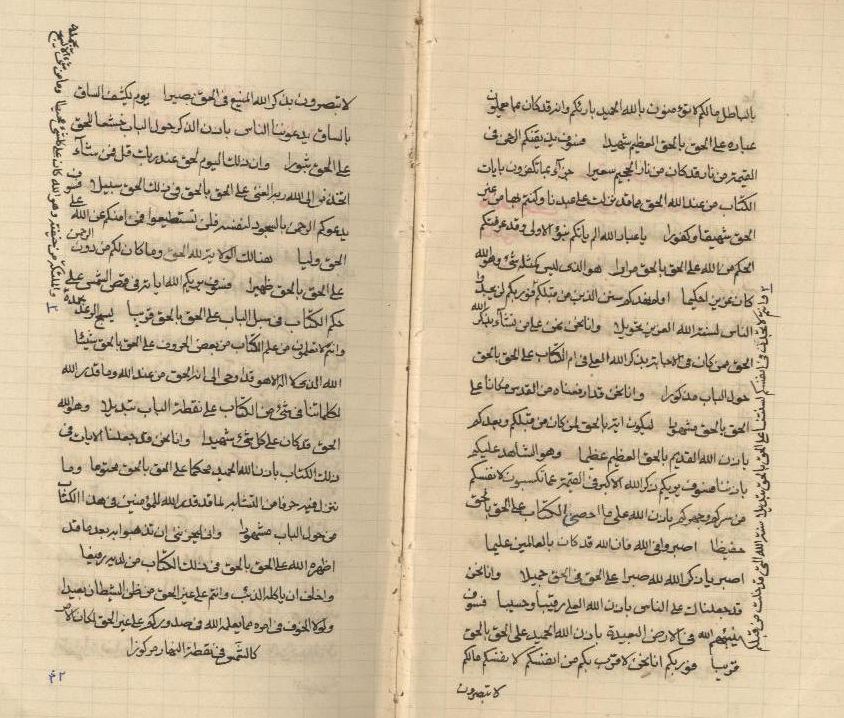 بالباطل مالكم لا تؤمنون بالله الحميد بارئكم وانه قد كان عما تعملون
عباده على الحق بالحق العظيم شهيدا فسوف يذيقنكم الرحمن في
القيمة من نار قد كان من نار الجحيم سعيرا جزآء بما تكفرون بايات
الكتاب من عند الله الحق مما قد نزلت على عبدنا وكنتم بها من غير
الحق شهيقا وكفورا يا عباد الله الم ياتكم نبؤ الاولى وقد عرفتكم
الحكم من الله على الحق بالحق مرارا هو الذي ليس كمثله شئ وهو الله
كان عزيزا حكيما اولم يقدكم سنن الذين من قبلكم فوربكم لن يجدن
الناس لسنة الله العزيز تحويلا وانا نحن نمن على من نشآء بذكر الله
الحق ممن كان في الاجابة بذكر الله العلي في ام الكتاب على الحق بالحق
حول الباب مذكورا وانا نحن قد رفعناه من القدس مكانا على
الحق بالحق مشهودا ليكون اية بالحق لمن كان من قبلكم وبعدكم
باذن الله القديم بالحق العظيم عظيما وهو الشاهد عليكم
باذننا فسوف يريكم ذكر الله الاكبر في القيمة عما تكسبون لانفسكم
من سركم وجهركم باذن الله على ما احصى الكتاب على الحق بالحق
حفيظا اصبروا في الله فان الله قد كان بالعالمين عليما
اصبر يا ذكر الله لله صبرا على الحق في الحق جميلا وانا نحن
قد جعلناك على الناس باذن الله العلي رقيبا وحسيبا فسوف
ينبئهم الله في الارض البعيدة باذن الله الحميد على الحق بالحق
قريبا فوربكم انا نحن لاقرب بكم من انفسكم لانفسكم مالكم
لا تبصرون
وانتم لا تجدن في انفسكم لسنتنا على الحق بالحق تبديلا سنة الله التي قد خلت من قبل
لا تبصرون بذكر الله المنيع في الحق بصيرا يوم يكشف الساق
بالساق يدعوننا الناس باذن الذكر حول الباب خشعا للحق
على الحق ثبورا وان ذلك اليوم لحق عند ربك قل فمن شآء
اتخذ فيه الى الله ربه الغني على الحق بالحق في ذلك الحق سبيلا فسوف
يدعوكم الرحمن بالسجود لنفسه فلن تستطيعوا في امنكم عن الله
الحق وليا هنالك الولاية لله الحق وما كان لكم من دون الرحمن
على الحق بالحق ظهيرا فسوف يريكم الله اياته في قمص الشمس على
حكم الكتاب في سبل الباب على الحق بالحق قريبا يسبح الرعد بحمده
وانتم لا تعلمون من علم الكتاب من بعض الحروف على الحق بالحق شيئا
الله الذي لا اله الا هو قد اوحى الى انه الحق من عند الله وما قدر الله
لكلماتنا في شئ من الكتاب على نقطة الباب تبديلا وهو الله
الحق قد كان على كل شئ شهيدا وانا نحن قد جعلنا الايات في
ذلك الكتاب باذن الله الحميد محكما على الحق بالحق محتوما وما
ننزل فيه حرفا من التشابه لما قد قدر الله للمؤمنين في هذا الكتاب
من حول الباب مشهودا واني ليحزنني ان تذهبوا به بعد ما قد
اظهره الله على الحق بالحق في ذلك الكتاب من لديه رفيعا
واخاف ان ياكله الذئب وانتم على غير الحق من ظن الشيطان بعيدا
ولولا الخوف في امره مما يعلم الله في صدوركم على غير الحق لكان الامر
كالشمس في نقطة النهار مركوزا
وان من شئ الا يسبح بحمده
وما من
والملئكة من خيفته وهو الله كان على كل شئ
٤٢